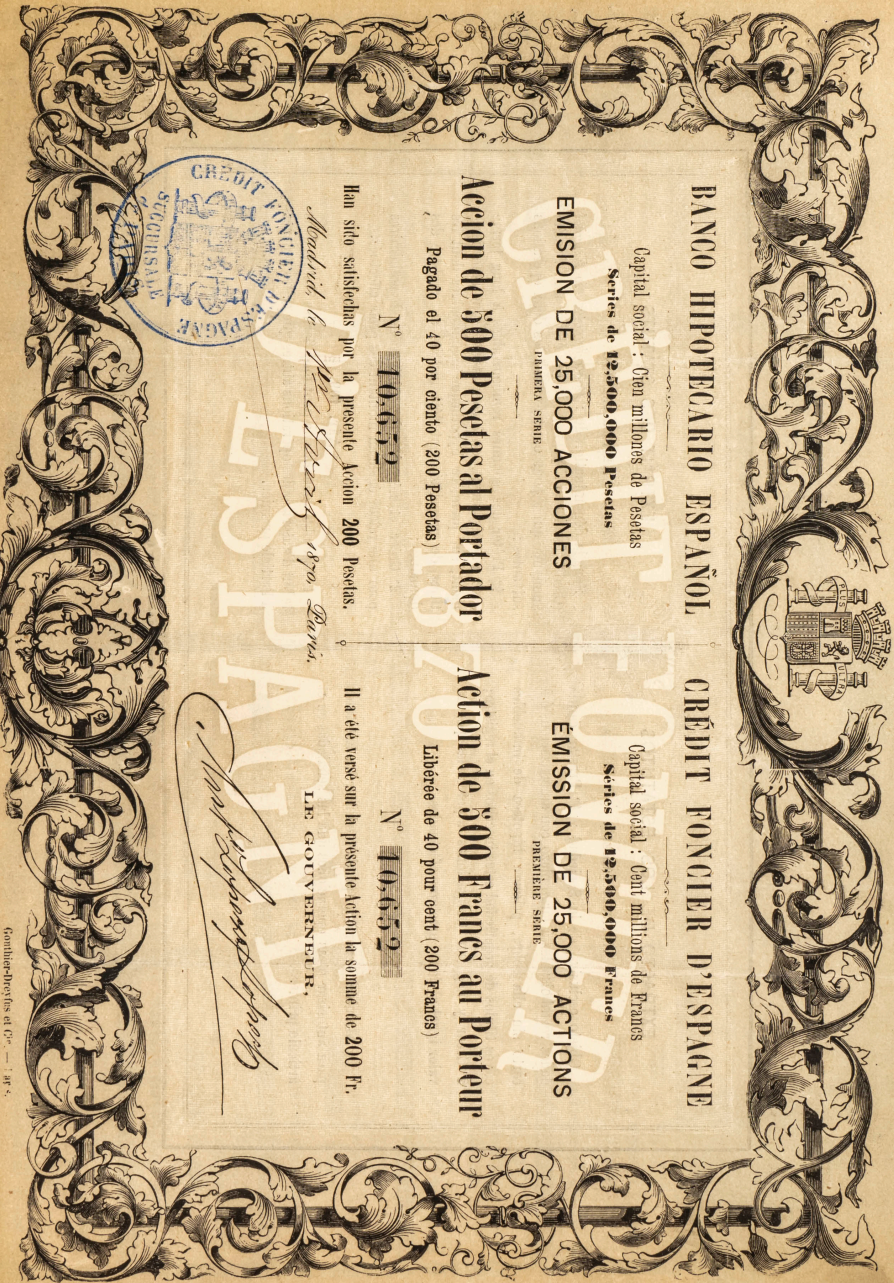 PLUS ULTRA
BANCO HIPOTECARIO ESPAÑOL
Capital social : Cien millones de Pesetas
Séries de 12,500,000 Pesetas
EMISION DE 25,000 ACCIONES
PRIMERA SERIE
Accion de 500 Pesetas al Portador
Pagado el 40 por ciento (200 Pesetas)
N° 10,652
Han sido satisfechas por la presente Accion 200 Pesetas.
CRÉDIT FONCIER D'ESPAGNE
Capital social : Cent millions de Francs
Séries de 12,500,000 Francs
ÉMISSION DE 25,000 ACTIONS
PREMIÈRE SÉRIE
Action de 500 Francs au Porteur
Libérée de 40 pour cent (200 Francs)
N° 10,652
Il a été versé sur la présente Action la somme de 200 Fr.
Madrid, le Avril 1870 Paris.
LE GOUVERNEUR,
CRÉDIT FONCIER
1870
D'ESPAGNE
CRÉDIT FONCIER D'ESPAGNE
SUCCURSALE
Gonthier-Dreyfus et Cie. —